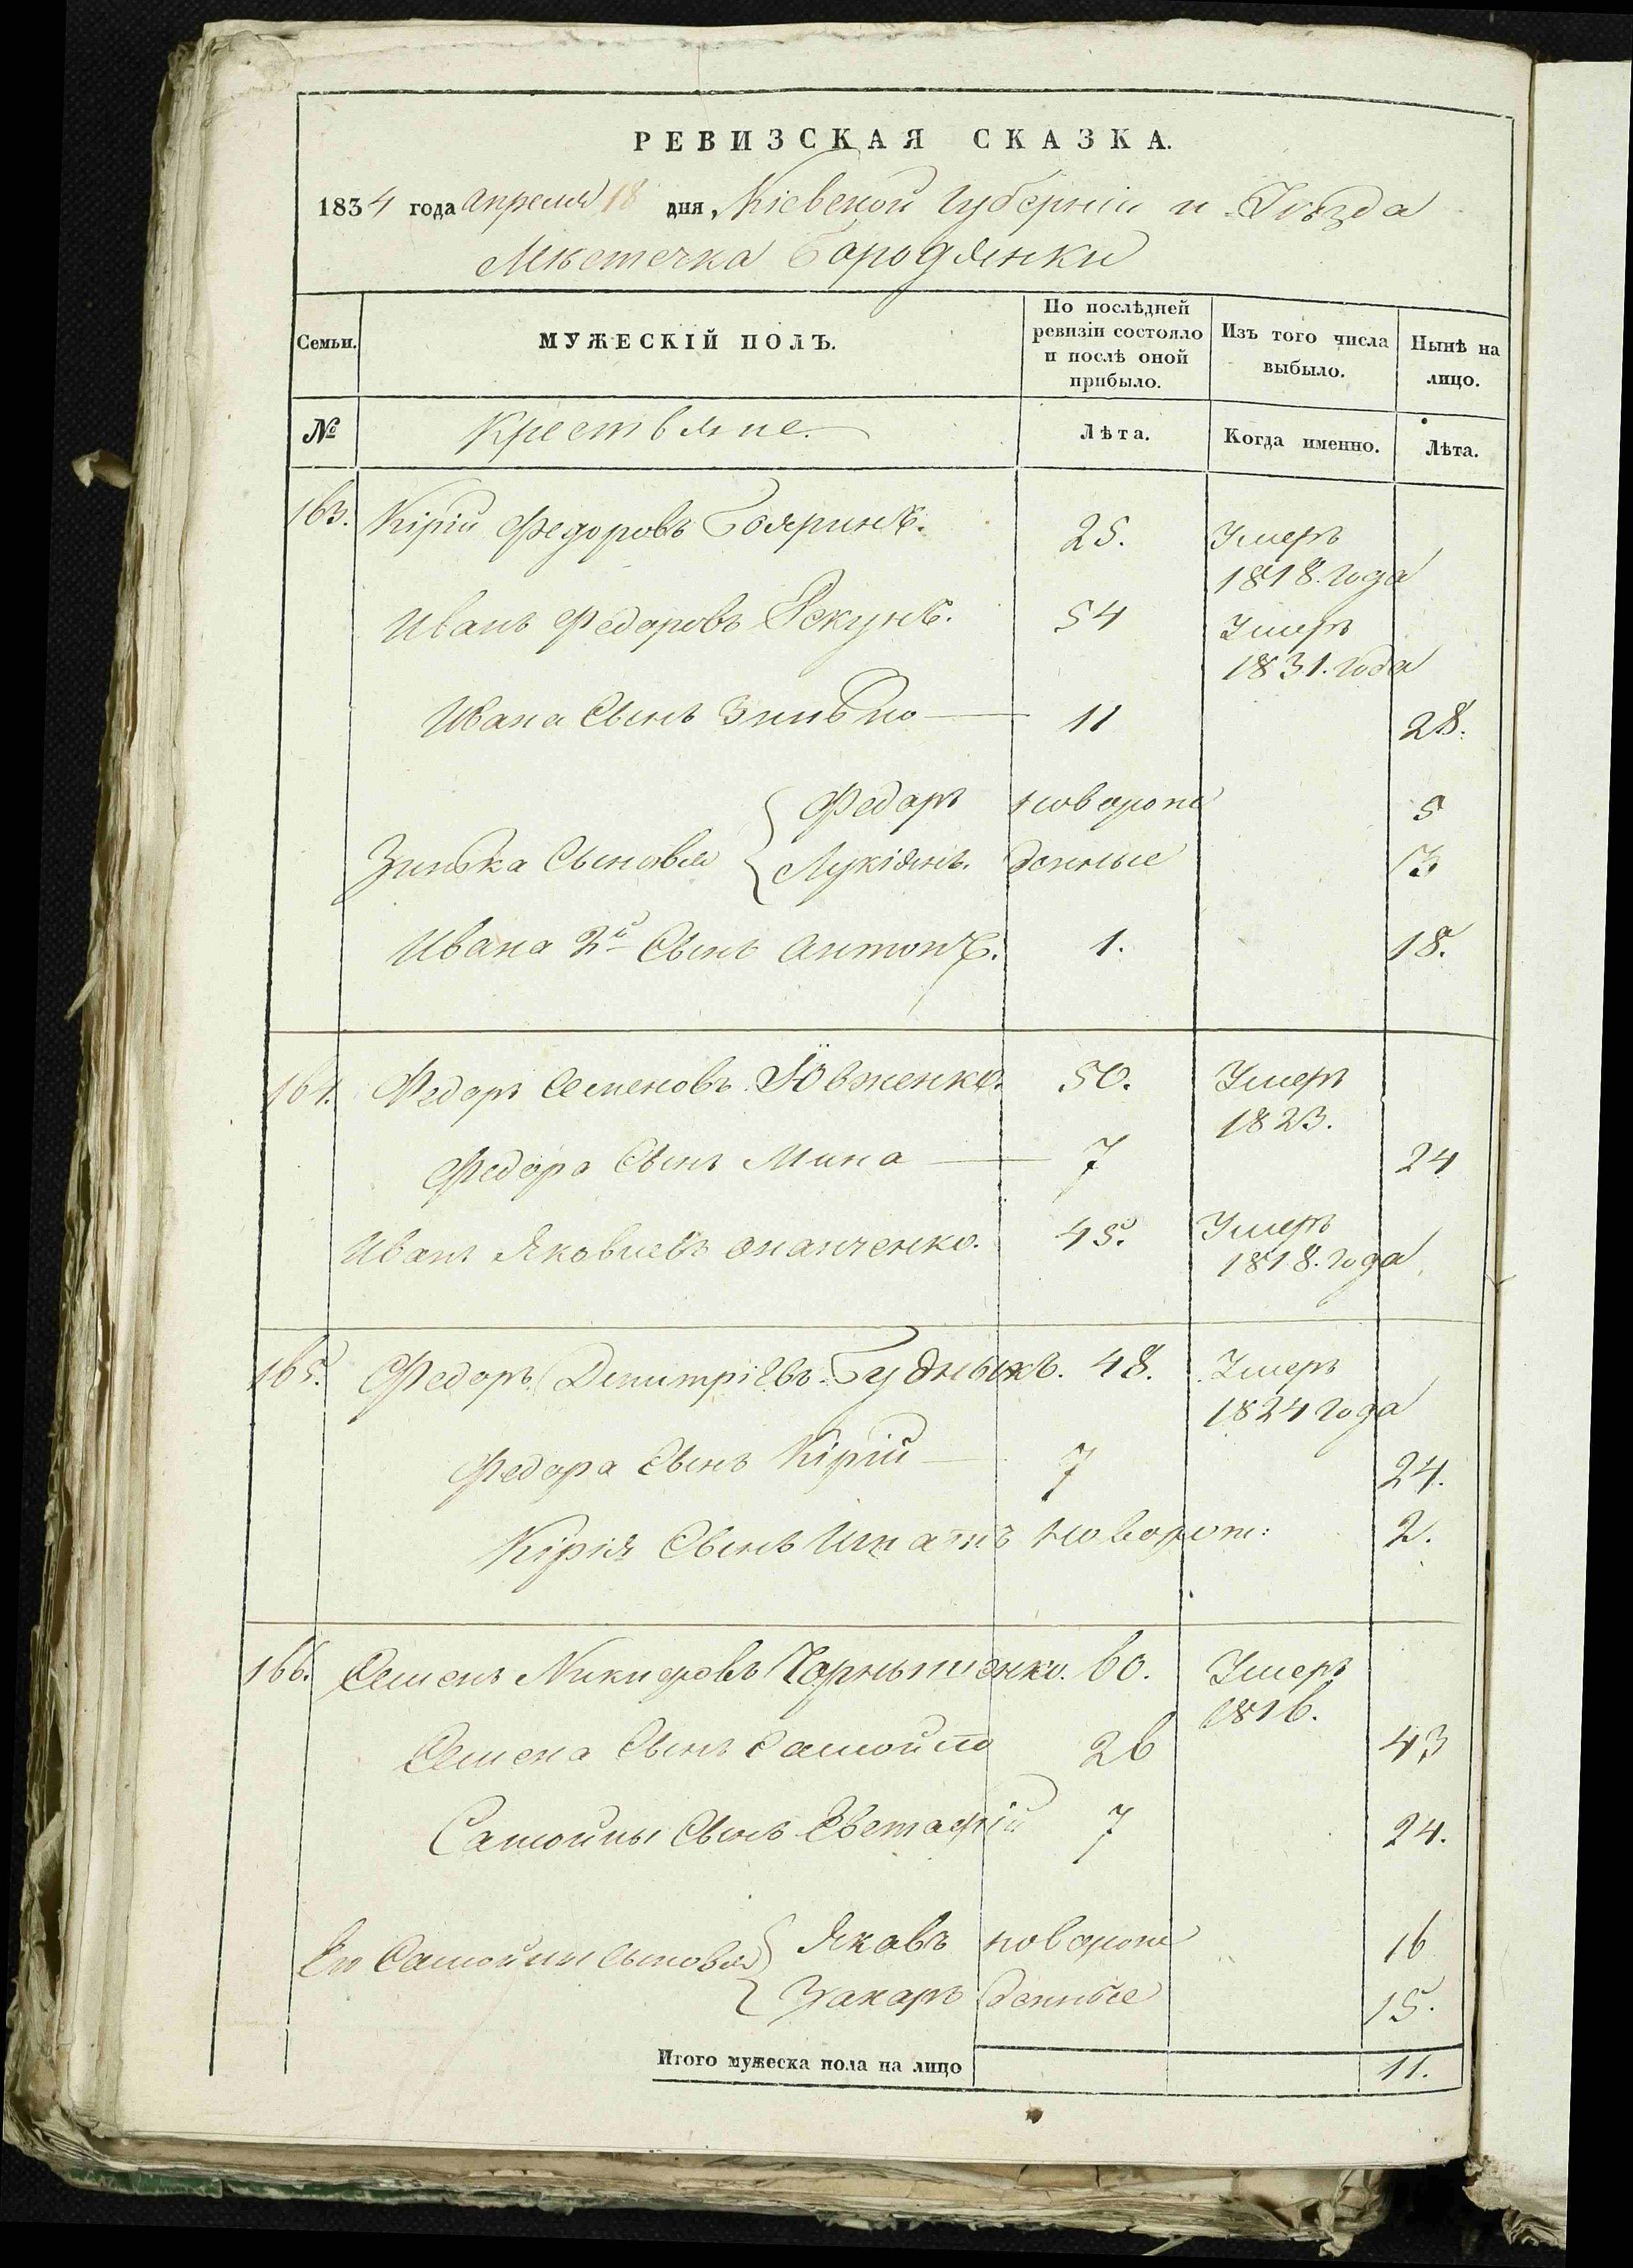 РЕВИЗСКАЯ СКАЗКА.
1834 года апреля 18 дня, Кіевской Губерніи и Уѣзда
Мѣстечка Бородянки
Семьи. МУЖЕСКІЙ ПОЛЪ. По послѣдней ревизіи состояло и послѣ оной прибыло. Изъ того числа выбыло. Нынѣ на лицо.
№ Крестьяне. Лѣта. Когда именно. Лѣта.
163. Кірій Федоровъ Бояринъ. 25. Умеръ
1818. года
Иванъ Федоровъ 54 Умеръ
1831. года
Ивана Сынъ Зинько 11 28.
Федоръ новорож 5
Зинька Сыновья Лукіянъ. денные 3
Ивана 2й Сынъ Антонъ. 1. 18.
164. Федоръ Семеновъ Ювженко. 50. Умеръ
1823.
Федора Сынъ Мина 7 24
Иванъ Яковлевъ Онанченко. 45. Умеръ
1818. года
165. Федоръ Дмитріевъ Будныкъ. 48. Умеръ
1824 года
Федора Сынъ Кірій 7 24.
Кірія Сынъ Игнатъ новорож: 2.
166. Семенъ Никифоровъ Чорнышенко. 60. Умеръ
1816.
Семена Сынъ Самойло 26 43
Самойлы Сынъ Евстафій 7 24.
Яковъ новорож 16
Его Самойлы Сыновья
Захаръ денные 15.
Итого мужеска пола на лицо 11.